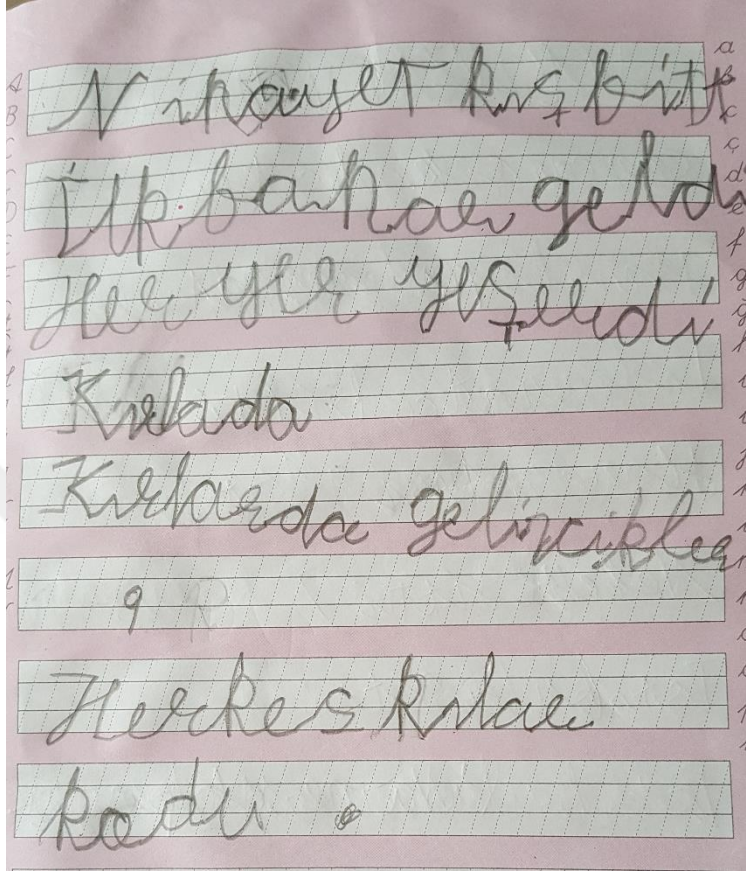 Nihayet kış bitt
İlk bahar geld
Her yer yeşerdi
Kırlada
Kırlarda gelincikler
9
Herkes kırlar
kodu.